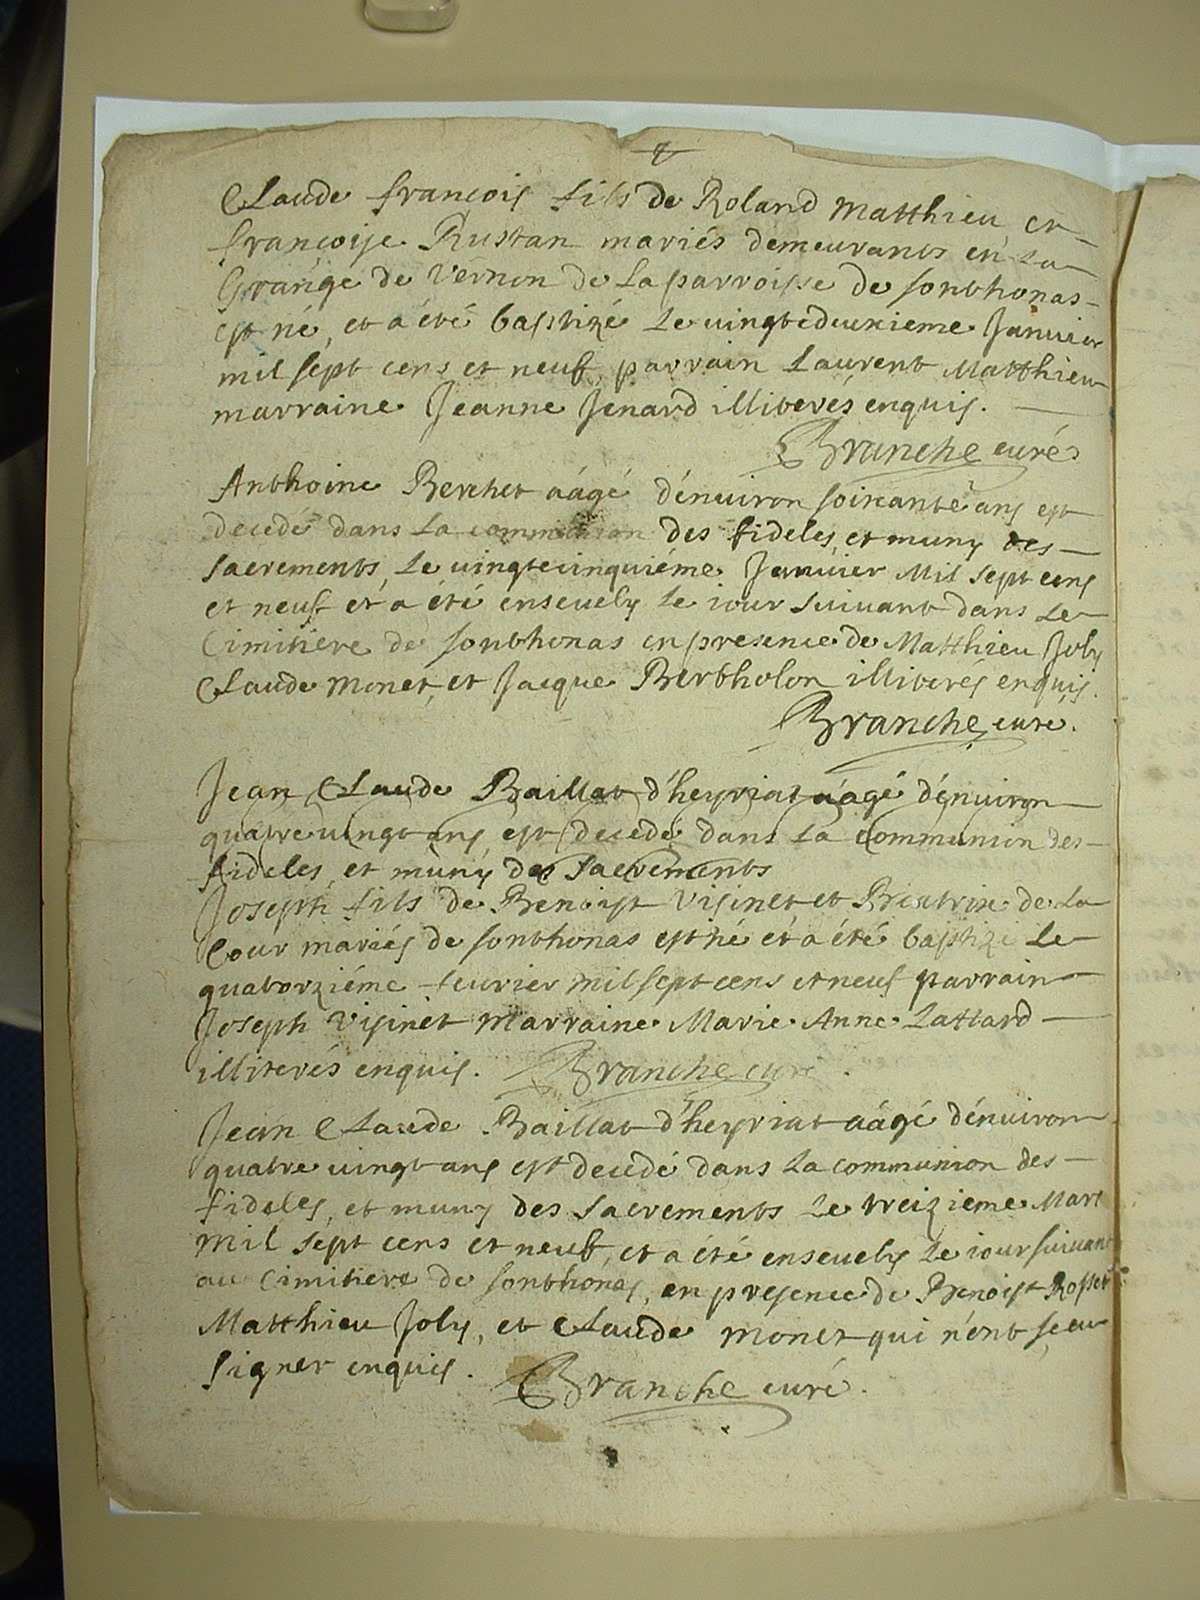 Claude françois fils de Roland Matthieu et
françoise Rustan mariés demeurants en la
Grange de Vernon de la parroisse de sonthonas
est né, et a été baptizé le vingtedeuxieme Janvier
mil sept cens et neuf, parrain Laurent Matthieu
marraine Jeanne Jenard illiterés enquis.
Branche curé
Anthoine Berchet aâgé d'enuiron soixante ans est
decedé dans la communion des fideles, et muny des
sacrements, le vingtecinquiéme Janvier Mil sept cens
et neuf et a été enseuely le iour suivant dans le
Cimitiere de sonthonas en presence de Matthieu Joly
Claude Monet, et Jacque Bertholon illiterés enquis.
Branche curé.
Jean Claude Baillat d'heyriat aâgé d'enuiron
quatre vingt ans est decedé dans la communion des
fideles, et muny des sacrements
Joseph fils de Benoist Visinet et Beatrix de la
Cour mariés de sonthonas est né et a été baptizé le
quatorziéme feurier mil sept cens et neuf parrain
Joseph Visinet marraine Marie Anne Lattard
illiterés enquis. Branche curé.
Jean Claude Baillat d'heyriat aâgé d'enuiron
quatre vingt ans est decedé dans la communion des
fideles, et muny des sacrements le treizieme Mars
mil sept cens et neuf, et a été enseuely le iour suivant
au Cimitiere de sonthonas, en presence de Benoist Rosset
Matthieu Joly, et Claude Monet qui n'ont sceu
signer enquis. Branche curé.